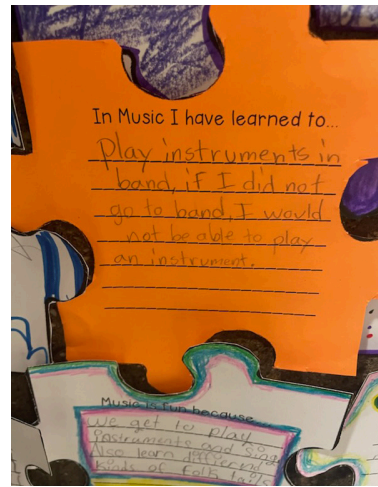 In Music I have learned to...
Play instruments in
band, if I did not
go to band, I would
not be able to play
an instrument.
Music is fun because...
We get to play
Instruments and sing
Also learn
kinds of folk